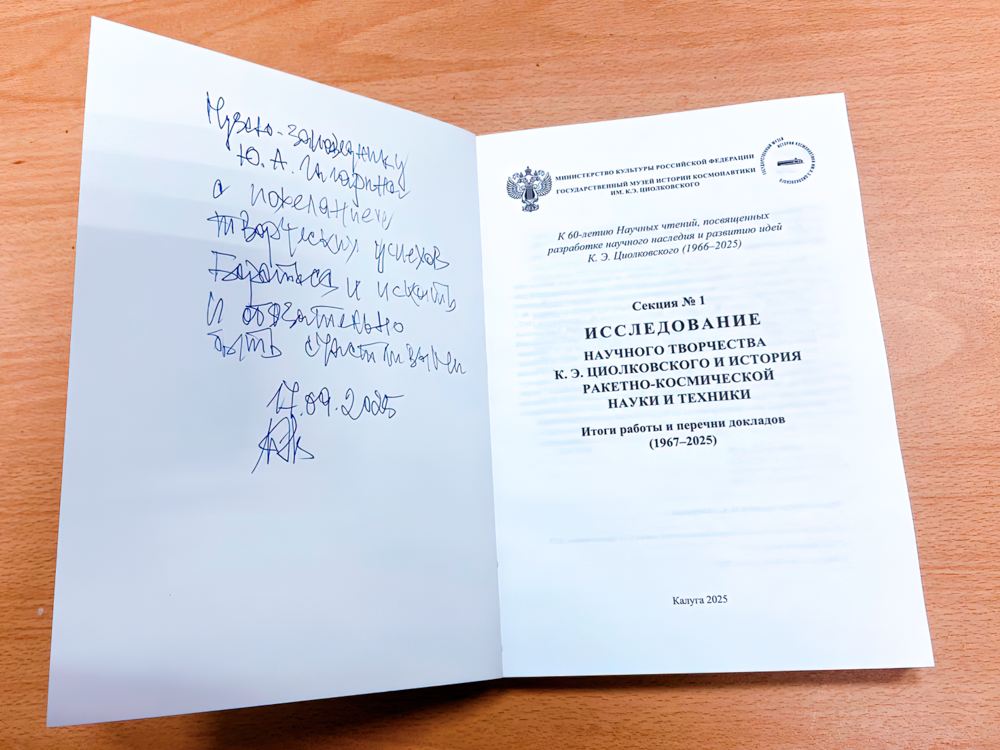 Музею-заповеднику
Ю. А. Гагарина
с пожеланием
творческих успехов
Бороться и искать
и обязательно
быть счастливыми
17.09.2025
МИНИСТЕРСТВО КУЛЬТУРЫ РОССИЙСКОЙ ФЕДЕРАЦИИ
ГОСУДАРСТВЕННЫЙ МУЗЕЙ ИСТОРИИ КОСМОНАВТИКИ
ИМ. К.Э. ЦИОЛКОВСКОГО
К 60-летию Научных чтений, посвященных
разработке научного наследия и развитию идей
К. Э. Циолковского (1966–2025)
Секция № 1
ИССЛЕДОВАНИЕ
НАУЧНОГО ТВОРЧЕСТВА
К. Э. ЦИОЛКОВСКОГО И ИСТОРИЯ
РАКЕТНО-КОСМИЧЕСКОЙ
НАУКИ И ТЕХНИКИ
Итоги работы и перечни докладов
(1967–2025)
Калуга 2025